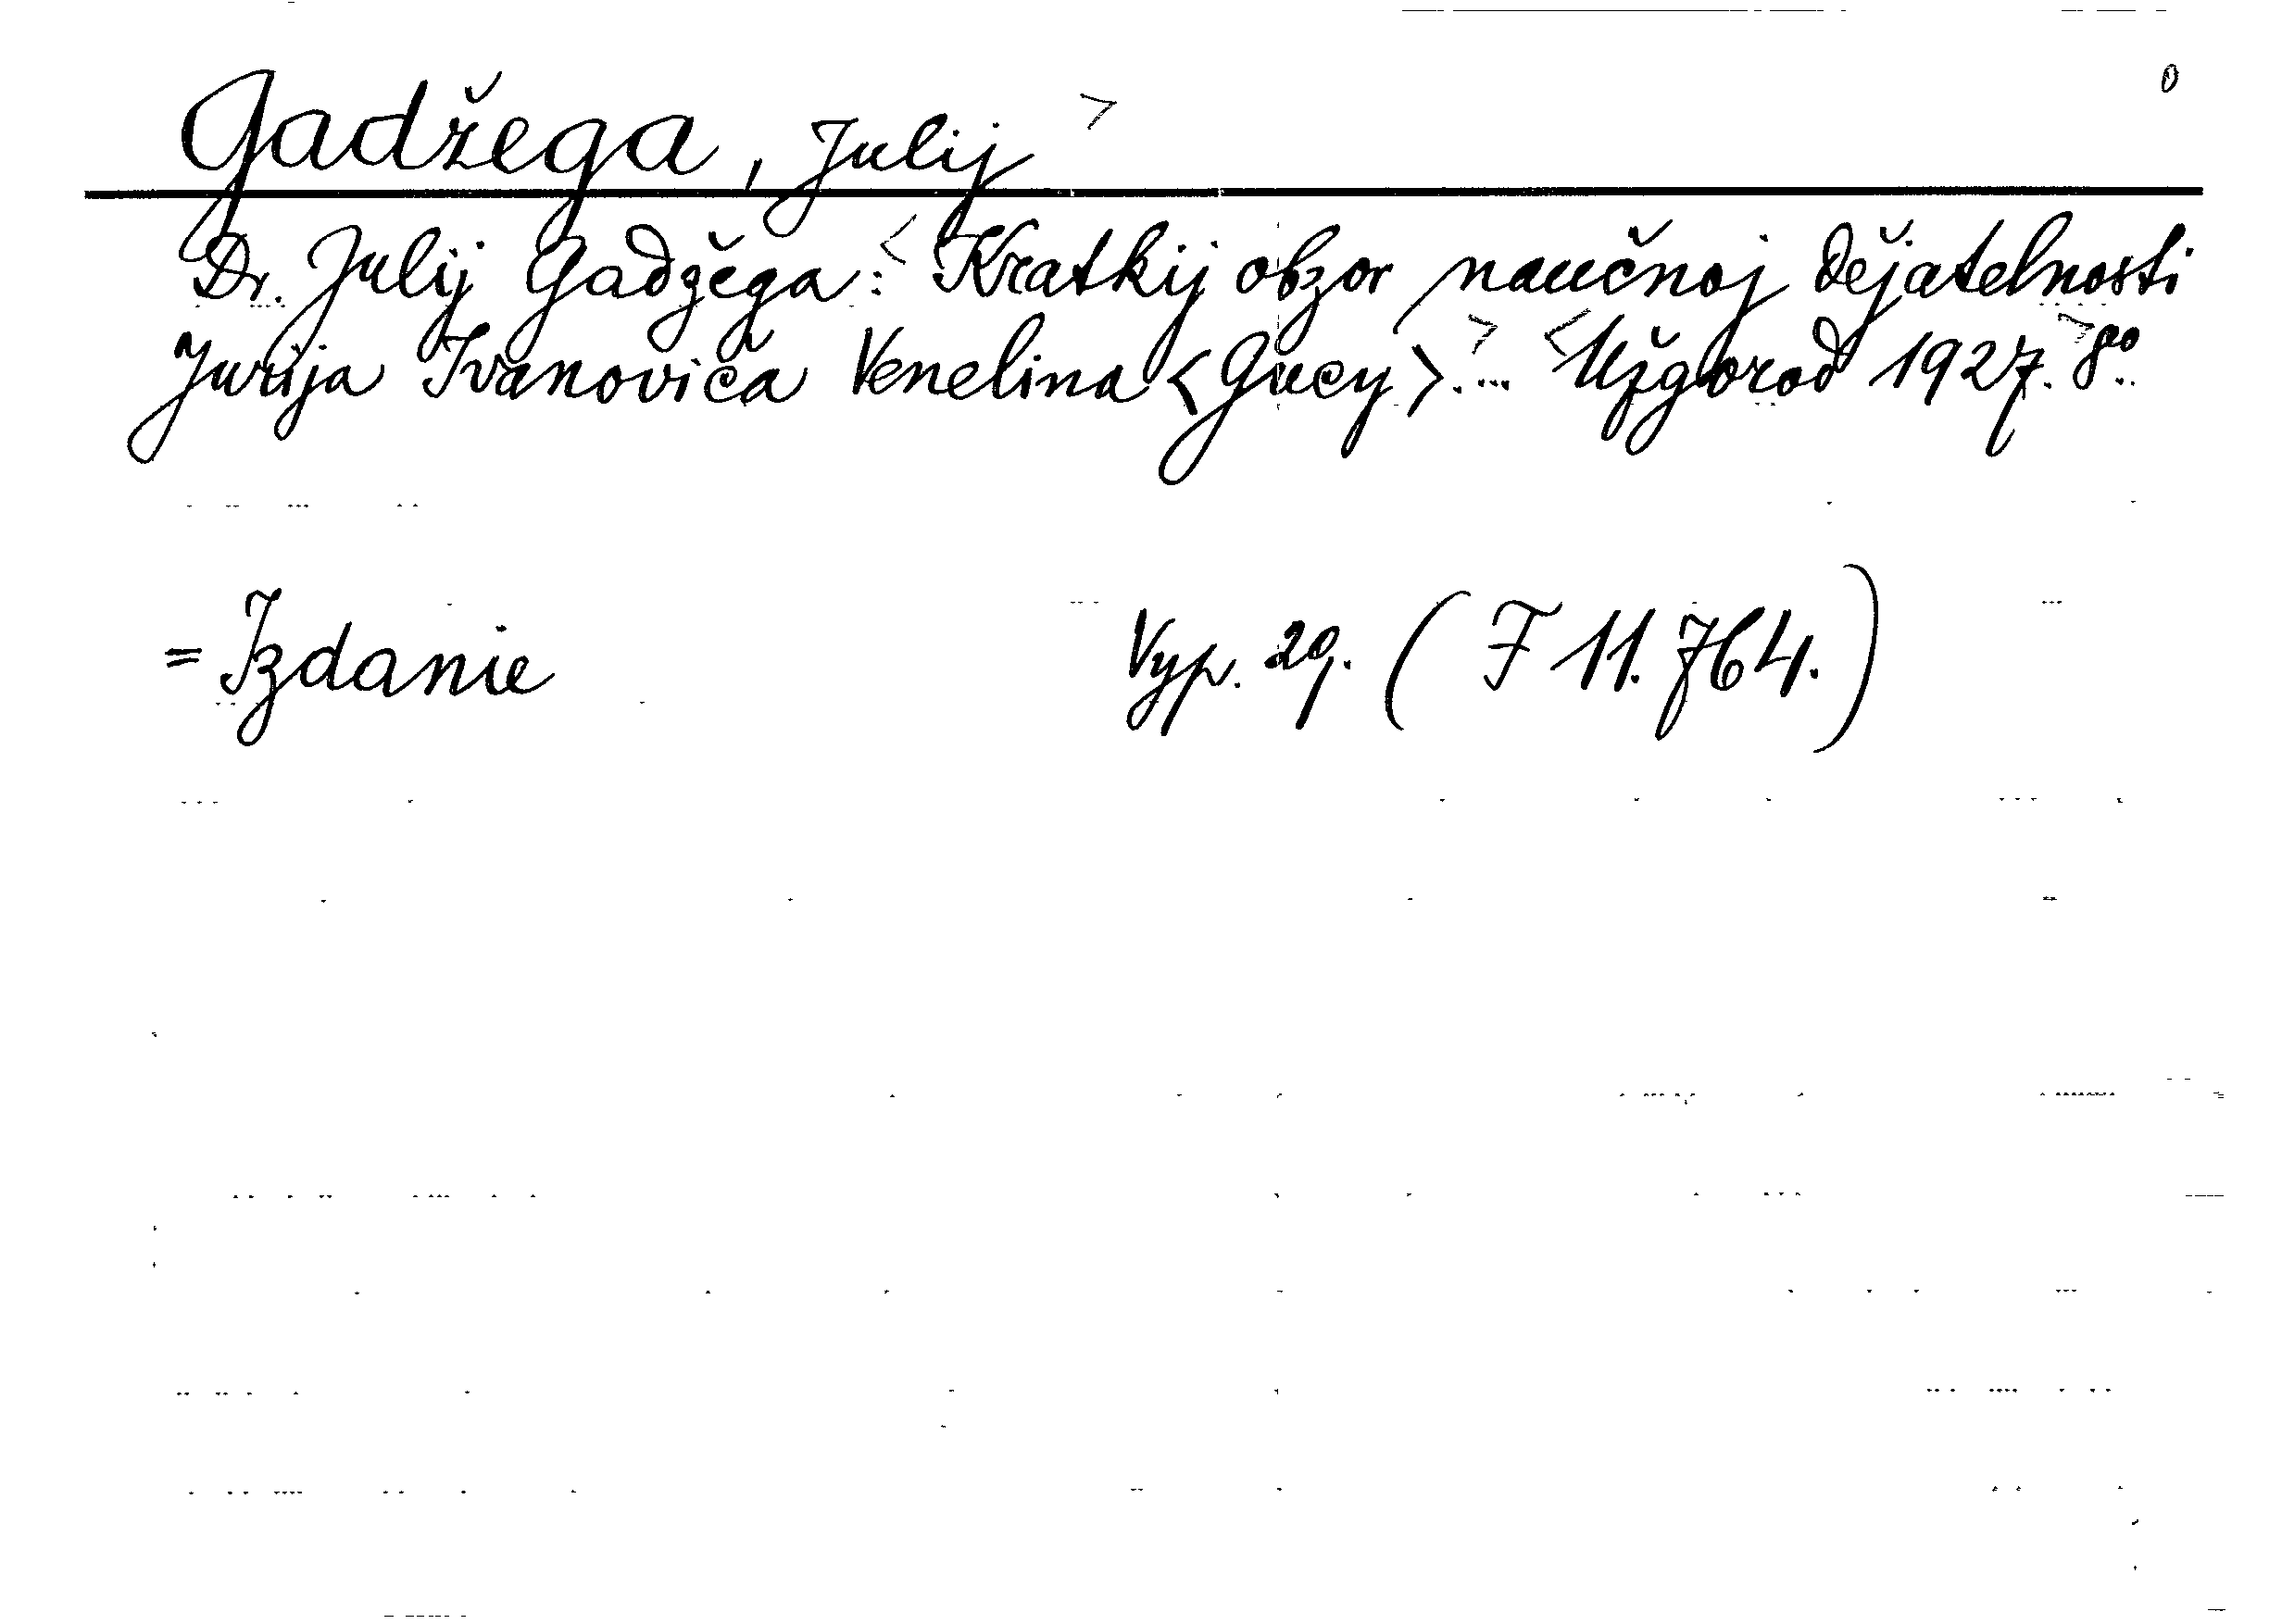 Gadžega, Julij >
Dr. Julij Gadžega: < Kratkij obzor naučnoj dějatelnosti
Jurija Ivanoviča Venelina <Gucy>. ... > < Užgorod 1927. > 8º..
= Izdanie Vyp. 29. (F 11.764.)